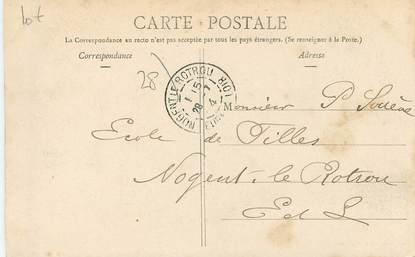 lot
CARTE POSTALE
La Correspondance au recto n'est pas acceptée par tous les pays étrangers. (Se renseigner à la Poste.)
Correspondance
Adresse
28
NOGENT LE ROTROU
Monsieur P
Ecole de Filles
Nogent-le Rotrou
E et L